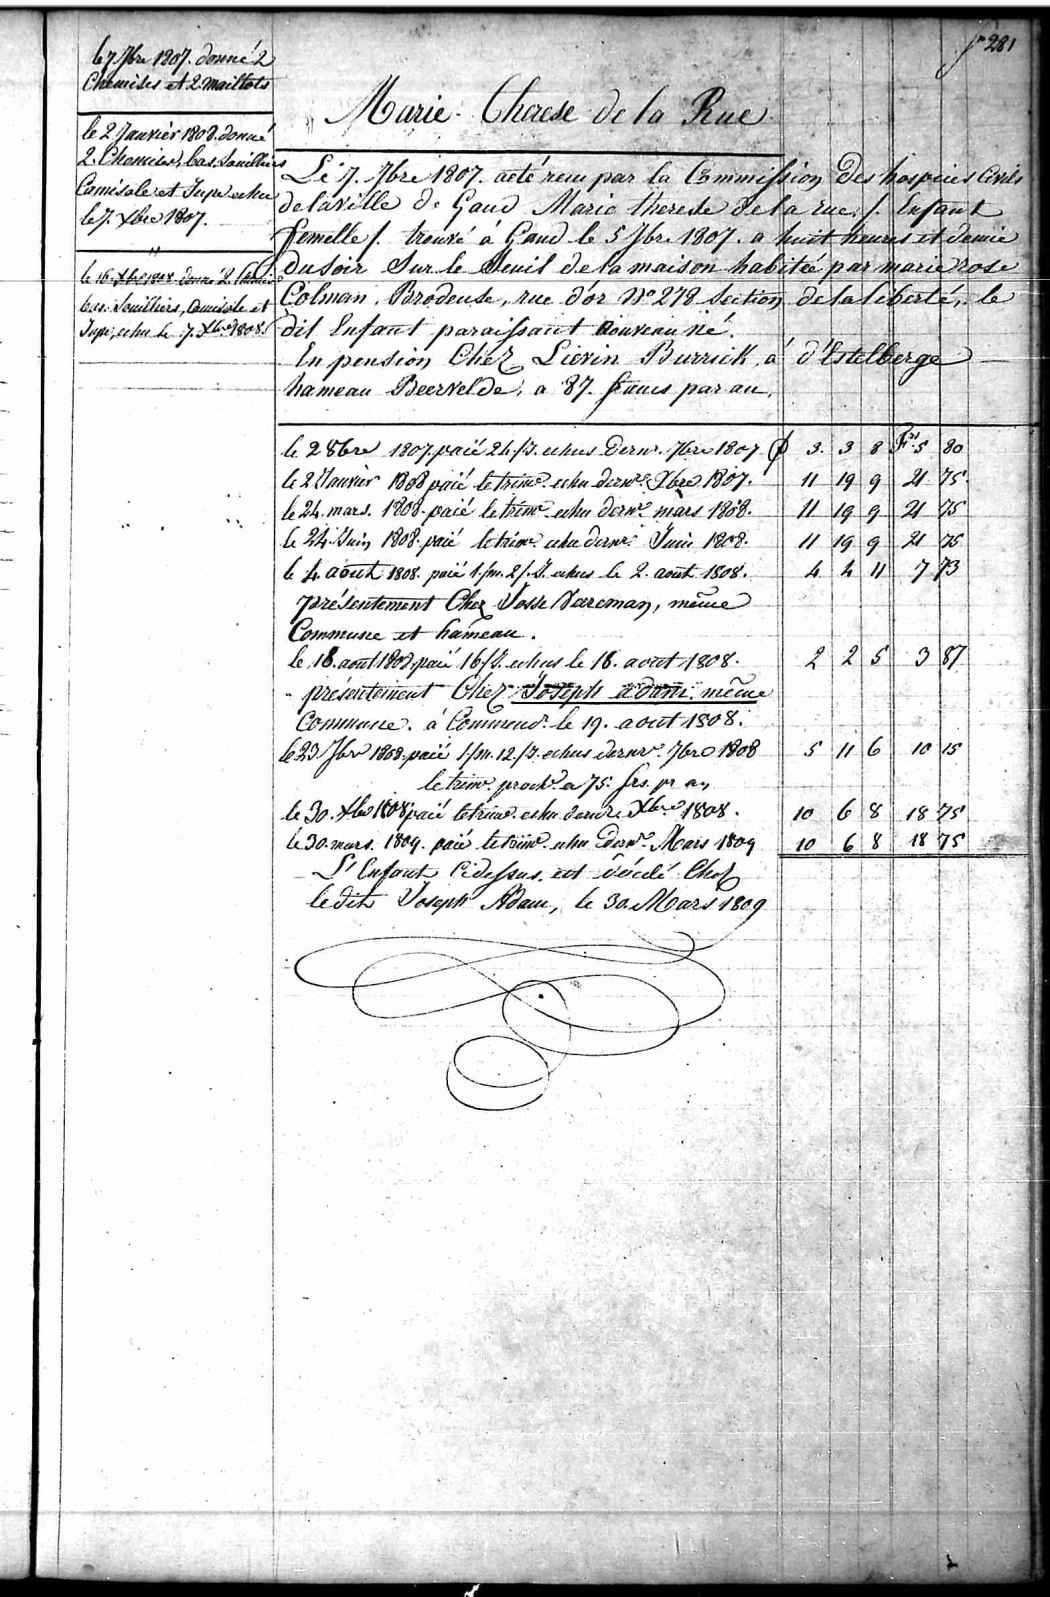 fo 281
le 7 7bre 1807. donné 2
Chemises et 2 Maillots
le 2 Janvier 1808. donné
2. Chemises, bas, Souilliers
Camisole et Jupe echu
le 7. Xbre 1807.
"
le 16. Xbre 1808 donné 2 Chemis:
bas, Souilliers, Camisole et
Jupe, echu le 7. Xbre 1808.
Marie Therese de la Rue
Le 7. 7bre 1807. a eté recu par la Commission des hospices Civils
de la ville de Gand Marie therese de la rue. /. Enfant
femelle /. trouvé à Gand le 5 7bre 1807. a huit heures et demie
du soir Sur le Seuil de la maison habitée par marie rose
Colman, Brodeuse, rue d'or No 278 Section de la liberté, le
dit Enfant paraissant nouveau né.
En pension Chez Lievin Burrick, à d'Estelberge
hameau Beervelde, a 87. francs par an,
le 2 8bre 1807. paié 24 /J. echus Dernr. 7bre 1807 ₵ 3. 3 8 Frs 5 80
le 2 Janvier 1808 paié le trimre. echu dernr. Xbre 1807. 11 19 9 21 75
le 24. mars. 1808. paié le trimre. echu dernr. mars 1808. 11 19 9 21 75
le 24. Juin 1808. paié le trimre. echu dernr. Juin 1808. 11 19 9 21 75
le 4. aout 1808. paié 1./m. 2/.J. echus le 2. aout 1808. 4 4 11 7 73
présentement Chez Josse Vareman, même
Commune et hameau.
le 18. aout 1808. paié 16/J. echus le 18. aout 1808. 2 2 5 3 87
présentement Chez Joseph adam même
Commune. à Commencr. le 19. aout 1808.
le 23 7br 1808. paié 1/m. 12./J. echus dernr. 7bre 1808 5 11 6 10 15
le trimre. proch. a 75. frs. pr an
le 30. Xbre 1808 paié le trimre. echu dernr. Xbre 1808. 10 6 8 18 75
le 30. mars. 1809. paié le trimre. echu Dernr. Mars 1809 10 6 8 18 75
L'Enfant Cidessus. est décédé Chez
le dit Joseph Adam, le 30. Mars 1809